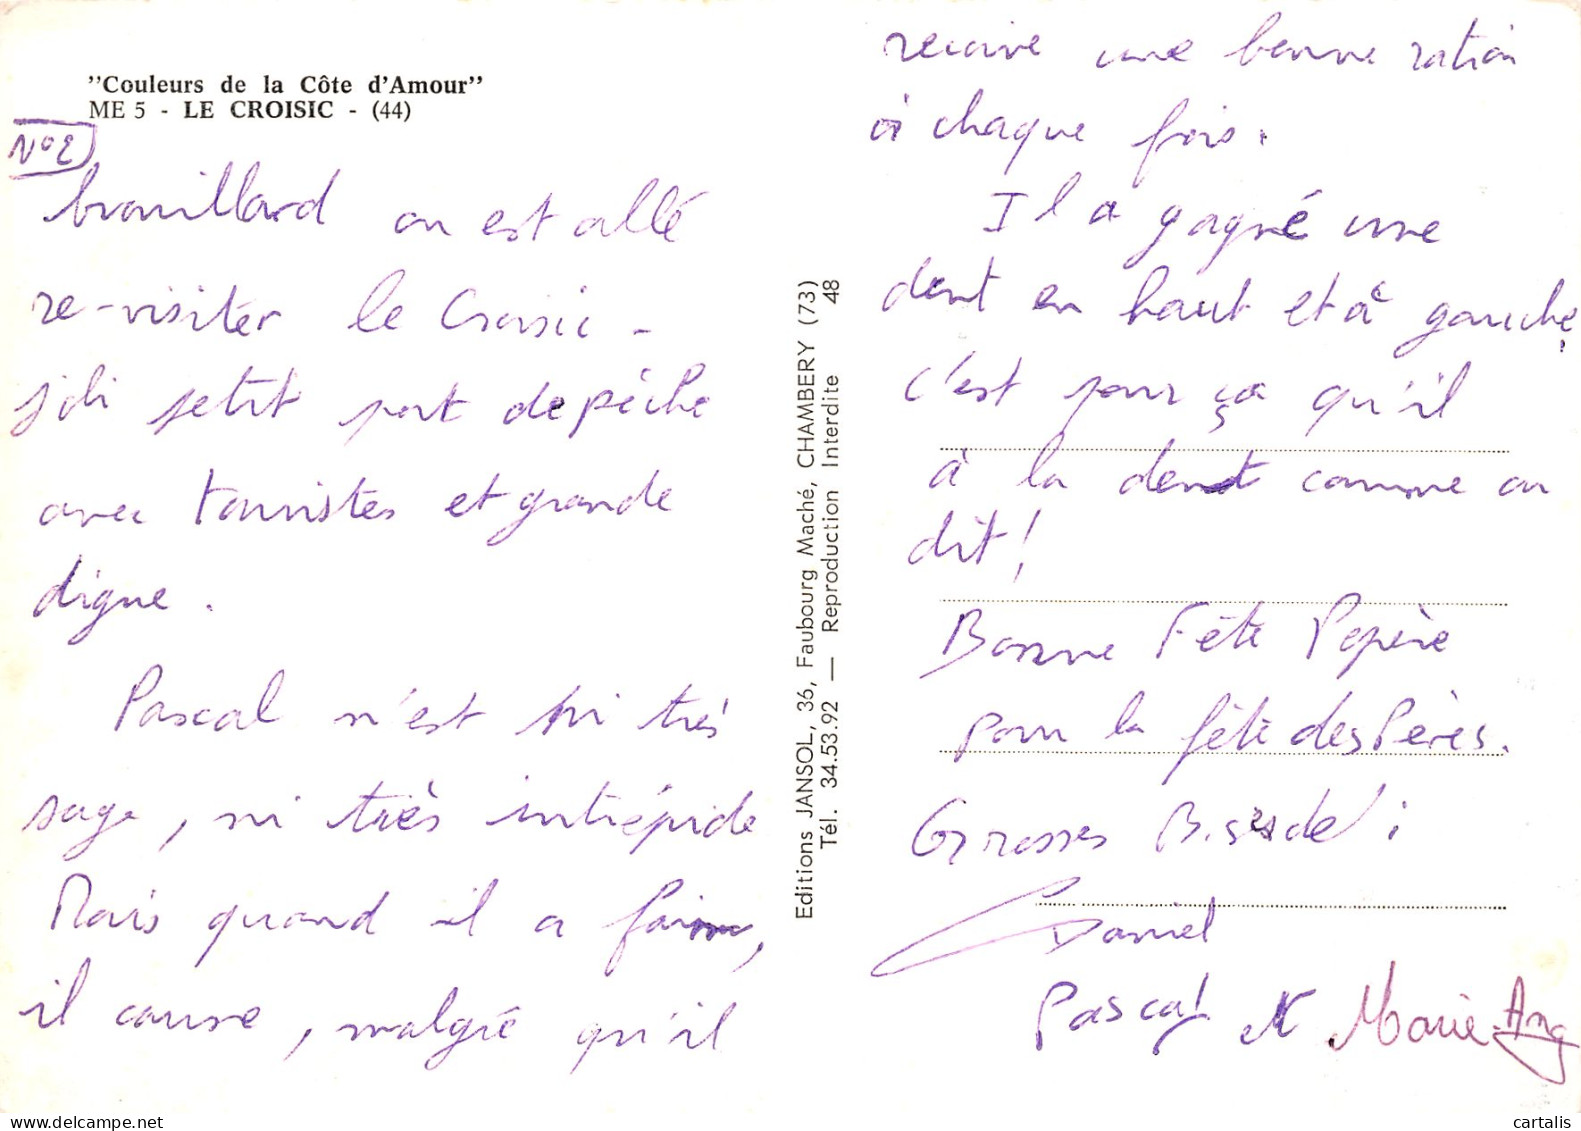 "Couleurs de la Côte d'Amour"
ME 5 - LE CROISIC - (44)
N°2
brouillard on est allé
re-visiter le Croisic -
joli petit port de pêche
avec touristes et grande
digne.
Pascal n'est ni très
sage, ni très intrépide
Mais quand il a faim,
il cause, malgré qu'il
Editions JANSOL, 36, Faubourg Maché, CHAMBERY (73)
Tél. 34.53.92 — Reproduction Interdite 48
reçoive une bonne ration
à chaque fois.
Il a gagné une
dent en haut et à gauche,
c'est pour ça qu'il
à la dent comme on
dit!
Bonne Fête Pépère
pour la fête des Pères.
Grosses Bises de :
Daniel
Pascal N Marie-Ang
cartalis